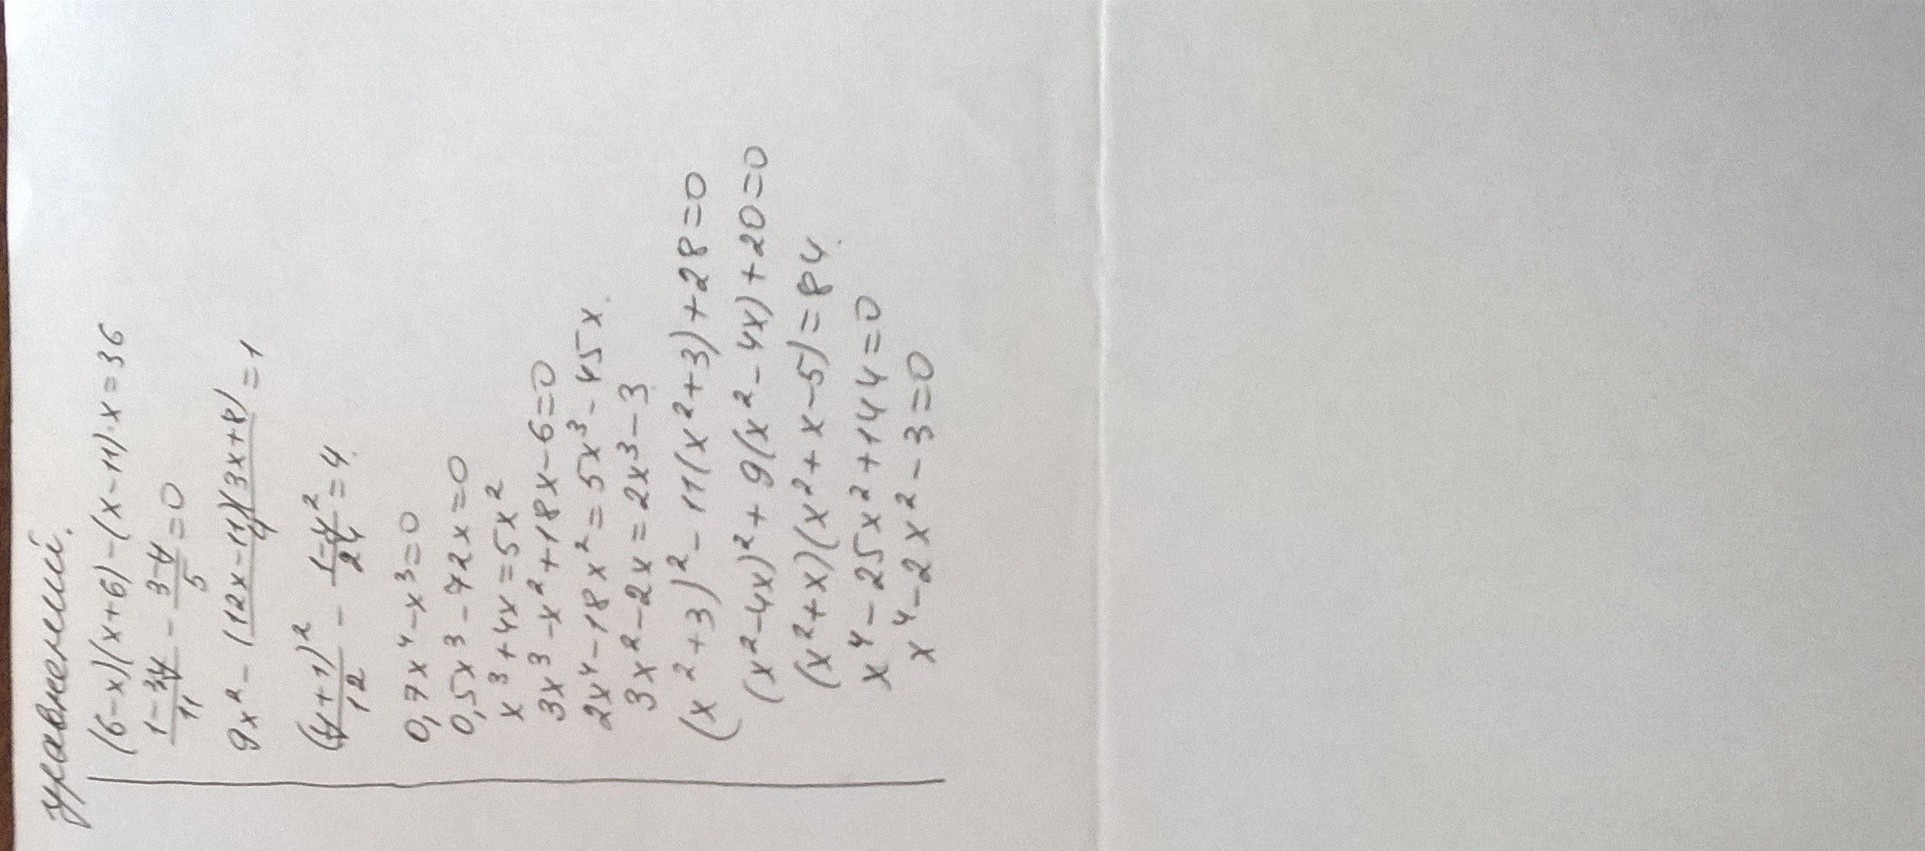 уравнений.
(6-x)(x+6)-(x-11)·x=36
\frac{1-3y}{11} - \frac{3-y}{5} = 0
9x² - \frac{(12x-11)(3x+8)}{4} = 1
\frac{(y+1)²}{12} - \frac{1-y²}{24} = 4.
0,7x⁴-x³=0
0,5x³-72x=0
x³+4x=5x²
3x³-x²+18x-6=0
2x⁴-18x²=5x³-45x.
3x²-2x=2x³-3
(x²+3)²-11(x²+3)+28=0
(x²-4x)²+9(x²-4x)+20=0
(x²+x)(x²+x-5)=84.
x⁴-25x²+144=0
x⁴-2x²-3=0